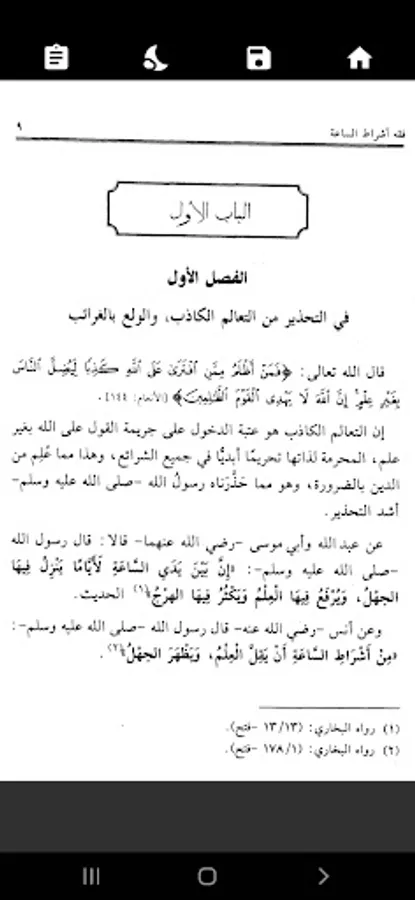 فقه أشراط الساعة ٩
الباب الأول
الفصل الأول
في التحذير من التعالم الكاذب، والولع بالغرائب
قال الله تعالى: ﴿فَمَنْ أَظْلَمُ مِمَّنِ افْتَرَىٰ عَلَى اللَّهِ كَذِبًا لِيُضِلَّ النَّاسَ
بِغَيْرِ عِلْمٍ إِنَّ اللَّهَ لَا يَهْدِي الْقَوْمَ الظَّالِمِينَ﴾ (الأنعام: ١٤٤).
إن التعالم الكاذب هو عتبة الدخول على جريمة القول على الله بغير
علم، المحرمة لذاتها تحريمًا أبديًّا في جميع الشرائع، وهذا مما عُلِم من
الدين بالضرورة، وهو مما حَذَّرَناه رسولُ الله -صلى الله عليه وسلم-
أشد التحذير.
عن عبد الله وأبي موسى -رضي الله عنهما- قالا: قال رسول الله
-صلى الله عليه وسلم-: «إِنَّ بَيْنَ يَدَيِ السَّاعَةِ لَأَيَّامًا يَنْزِلُ فِيهَا
الجَهْلُ، وَيُرْفَعُ فِيهَا الْعِلْمُ وَيَكْثُرُ فِيهَا الهَرْجُ»(١) الحديث.
وعن أنس -رضي الله عنه- قال رسول الله -صلى الله عليه وسلم-:
«مِنْ أَشْرَاطِ السَّاعَةِ أَنْ يَقِلَّ الْعِلْمُ، وَيَظْهَرَ الجَهْلُ»(٢).
(١) رواه البخاري: (١٣/١٣ -فتح).
(٢) رواه البخاري: (١٧٨/١ -فتح).